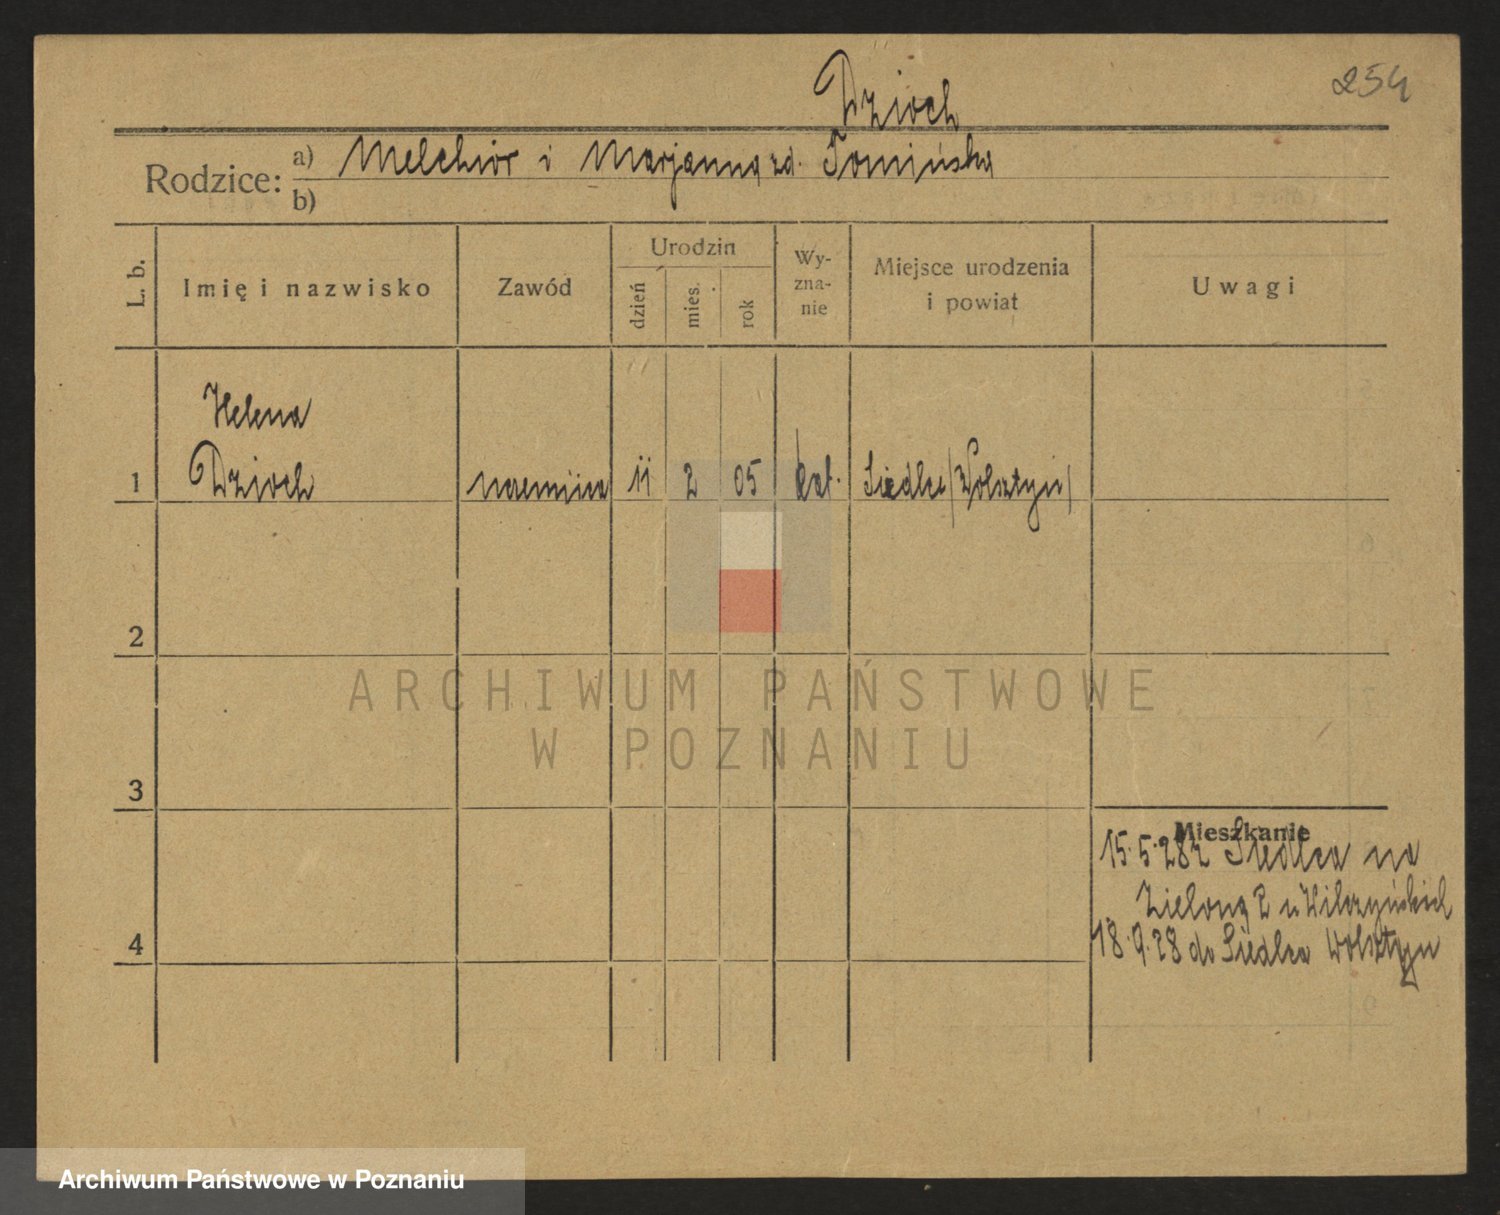 254
Dzioch
Rodzice: a) Melchior i Marjanna zd. Tomińska
b)
L. b. Imię i nazwisko Zawód Urodzin dzień mies. rok Wy-zna-nie Miejsce urodzenia i powiat Uwagi
Helena
1 Dzioch 11 2 05 kat. Siedlec /Wolsztyn/
2
3
4
Mieszkanie
15.5.28 z Siedlca na
Zieloną 2 u Wilczyńskich
18.9.28 do Siedlca Wolsztyn
ARCHIWUM PAŃSTWOWE
W POZNANIU
Archiwum Państwowe w Poznaniu